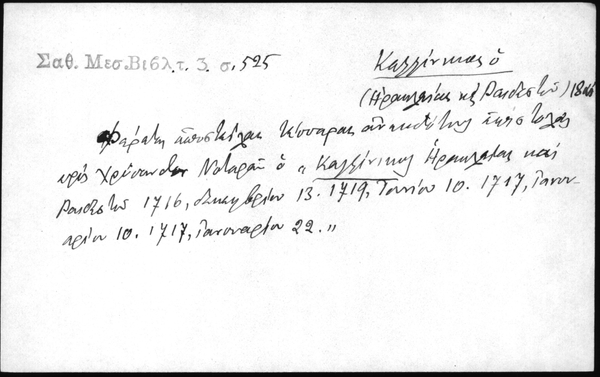 Σαθ. Μεσ. Βιβλ. τ. 3. σ. 525
Καλλίνικος ὁ
(Ἡρακλείας κ Ραιδεστοῦ) 18ος
Φέρεται ἀποστείλας τέσσαρας ἀνεκδότους ἐπιστολὰς
πρὸς Χρύσανθον Νοταρᾶν ὁ „Καλλίνικος Ἡρακλείας καὶ
Ραιδεστοῦ 1716, Δεκεμβρίου 13. 1719, Ἰουνίου 10. 1717, Ἰανου-
αρίου 10. 1717, Ἰανουαρίου 22. „